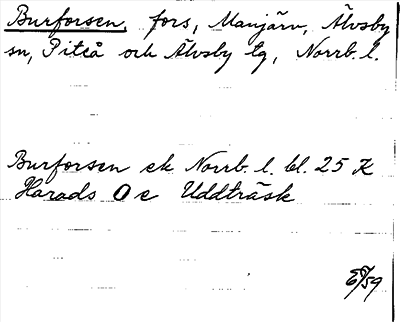 Burforsen, fors, Manjärv, Älvsby
sn, Piteå och Älvsby tg, Norrb. l.
Burforsen ek Norrb. l. bl. 25 K
Harads O e Uddträsk